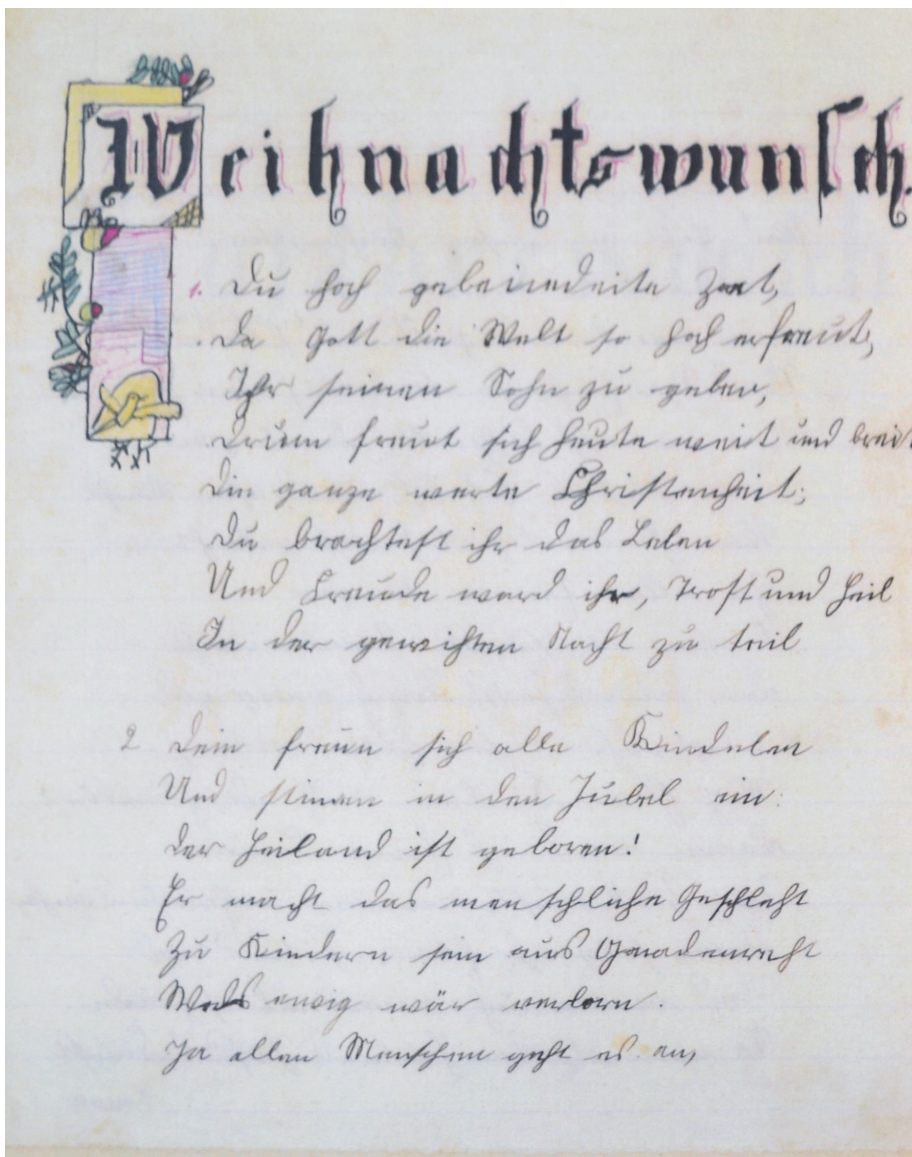 Weihnachtswunsch.
1. Du hoch gebeinedeite Zeit,
Da Gott die Welt so hoch erfreut,
Ihr seinen Sohn zu geben,
Drum freut sich heute weit und breit
Die ganze werte Christenheit;
Du brachtest ihr das Leben
Und Freude ward ihr, Trost und Heil
In der geweihten Nacht zu teil
2 Dein freuen sich alle Kindelen
Und stimen in den Jubel ein:
Der Heiland ist geboren!
Er macht das menschliche Geschleht
Zu Kindern sein aus Gnadenrecht
Was ewig wär verlorn.
Ja allen Menschen geht es an,